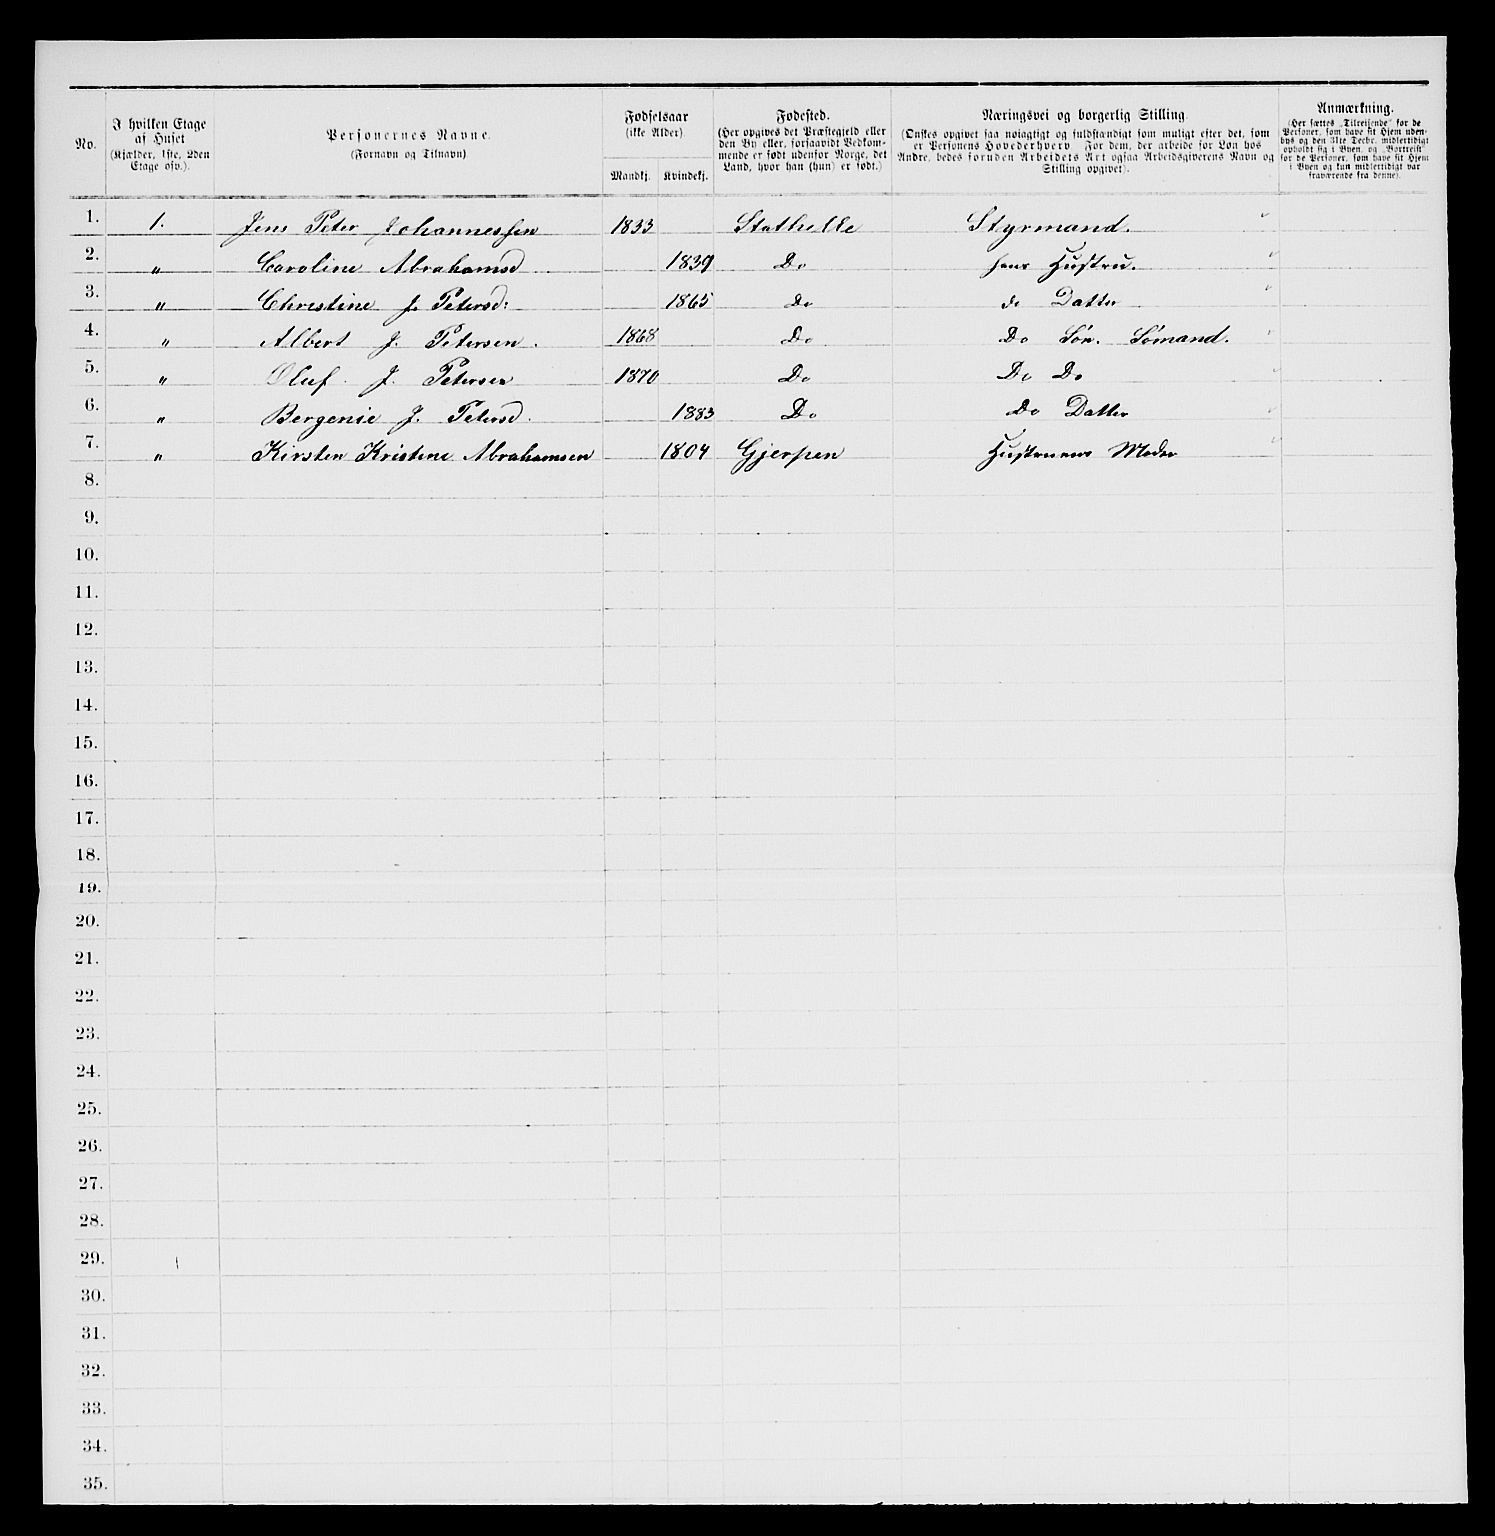 No.
I hvilken Etage
af Huset
(Kjælder, 1ste, 2den
Etage osv.).
Personernes Navne.
(Fornavn og Tilnavn)
Fødselsaar
(ikke Alder).
Mandkj.
Kvindekj.
Fødested.
(Her opgives det Præstegjeld eller
den By eller, forsaavidt Vedkom-
mende er født udenfor Norge, det
Land, hvor han (hun) er født.)
Næringsvei og borgerlig Stilling.
(Ønskes opgivet saa nøiagtigt og fuldstændigt som muligt efter det, som
er Personens Hovederhverv For dem, der arbeide for Løn hos
Andre, bedes foruden Arbeidets Art ogsaa Arbeidsgiverens Navn og
Stilling opgivet).
Anmærkning.
(Her sættes „Tilreisende“ for de
Personer, som have sit Hjem uden-
bys og den 31te Decbr. midlertidigt
opholdt sig i Byen, og „Bortreist“
for de Personer, som have sit Hjem
i Byen og kun midlertidigt var
fraværende fra denne).
1. 1. Jens Peter Johannessen 1833 Stathelle Styrmand.
2. " Caroline Abrahamsd 1839 Do hans Hustru.
3. " Christine J. Petersd: 1865 Do do Datter
4. " Albert J. Petersen. 1868 Do Do Søn. Sømand.
5. " Oluf. J. Petersen 1870 Do Do Do
6. " Bergenie J. Petersd. 1883 Do Do Datter
7. " Kirsten Kristine Abrahamsen 1804 Gjerpen Hustruens Moder
8.
9.
10.
11.
12.
13.
14.
15.
16.
17.
18.
19.
20.
21.
22.
23.
24.
25.
26.
27.
28.
29.
30.
31.
32.
33.
34.
35.